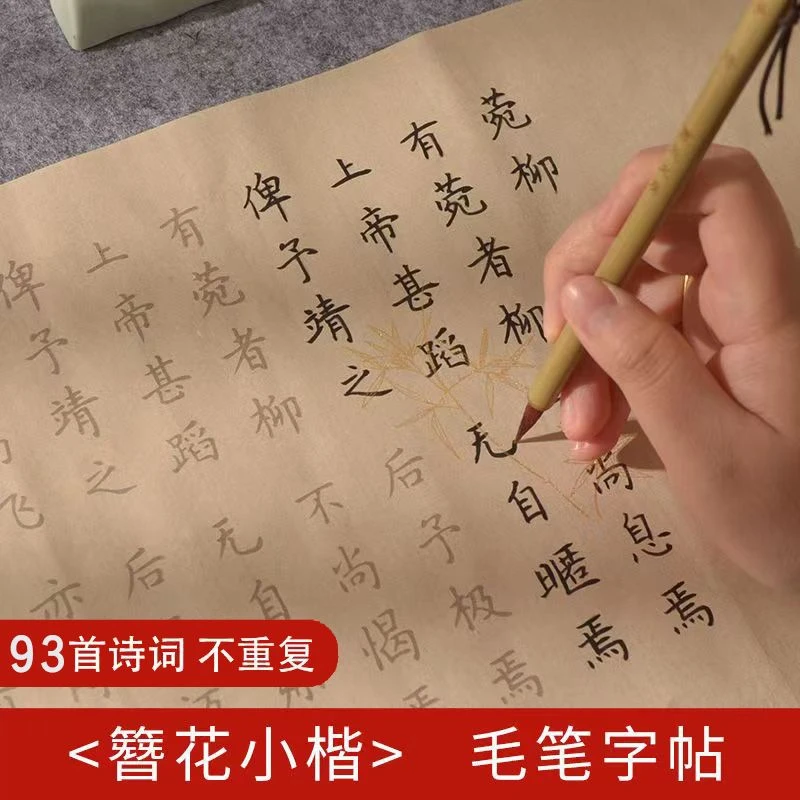 菀柳
有菀者柳
尚息焉
上帝甚蹈
无自暱焉
俾予靖之
后予极焉
有菀者柳
不尚愒焉
上帝甚蹈
无自
俾予靖之
后
飞
亦
93首诗词 不重复
<簪花小楷> 毛笔字帖